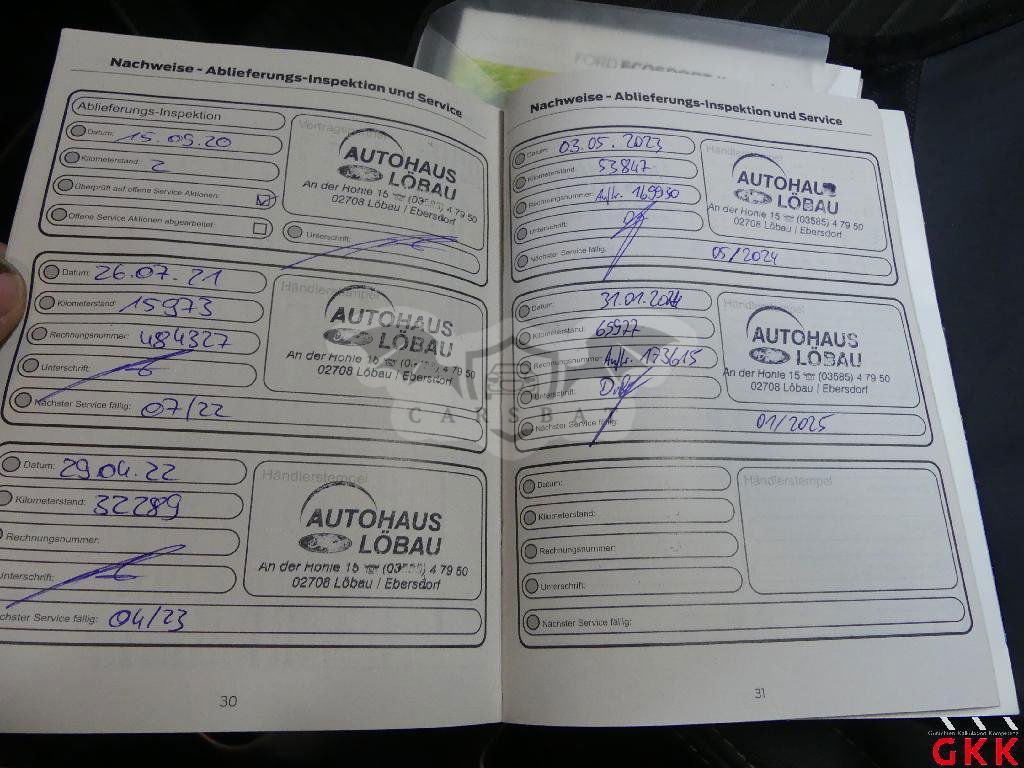 FORD ECOSPORT
Nachweise - Ablieferungs-Inspektion und Service
Ablieferungs-Inspektion
Datum: 15.09.20
Kilometerstand: 2
Überprüft auf offene Service Aktionen:
Offene Service Aktionen abgearbeitet:
Unterschrift:
AUTOHAUS
LÖBAU
An der Höhle 15 ☏ (03585) 4 79 50
02708 Löbau / Ebersdorf
Datum: 26.07.21
Kilometerstand: 15973
Rechnungsnummer: 484327
Unterschrift:
Nächster Service fällig: 07/22
Händlerstempel
AUTOHAUS
LÖBAU
An der Höhle 15 ☏ 4 79 50
02708 Löbau / Ebersdorf
Datum: 29.04.22
Kilometerstand: 32289
Rechnungsnummer:
Unterschrift:
Nächster Service fällig: 04/23
Händlerstempel
AUTOHAUS
LÖBAU
An der Höhle 15 ☏ 4 79 50
02708 Löbau / Ebersdorf
30
Nachweise - Ablieferungs-Inspektion und Service
Datum: 03.05.2023
Kilometerstand: 53847
Rechnungsnummer: 169950
Unterschrift:
Nächster Service fällig: 05/2024
Händlerstempel
AUTOHAUS
LÖBAU
An der Höhle 15 ☏ (03585) 4 79 50
02708 Löbau / Ebersdorf
Datum: 31.01.2024
Kilometerstand: 65977
Rechnungsnummer: 173615
Unterschrift:
Nächster Service fällig: 01/2025
Händlerstempel
AUTOHAUS
LÖBAU
An der Höhle 15 ☏ (03585) 4 79 50
02708 Löbau / Ebersdorf
Datum:
Kilometerstand:
Rechnungsnummer:
Unterschrift:
Nächster Service fällig:
Händlerstempel
31
CARSBAT
Gutachten Kalkulation Kompetenz
GKK